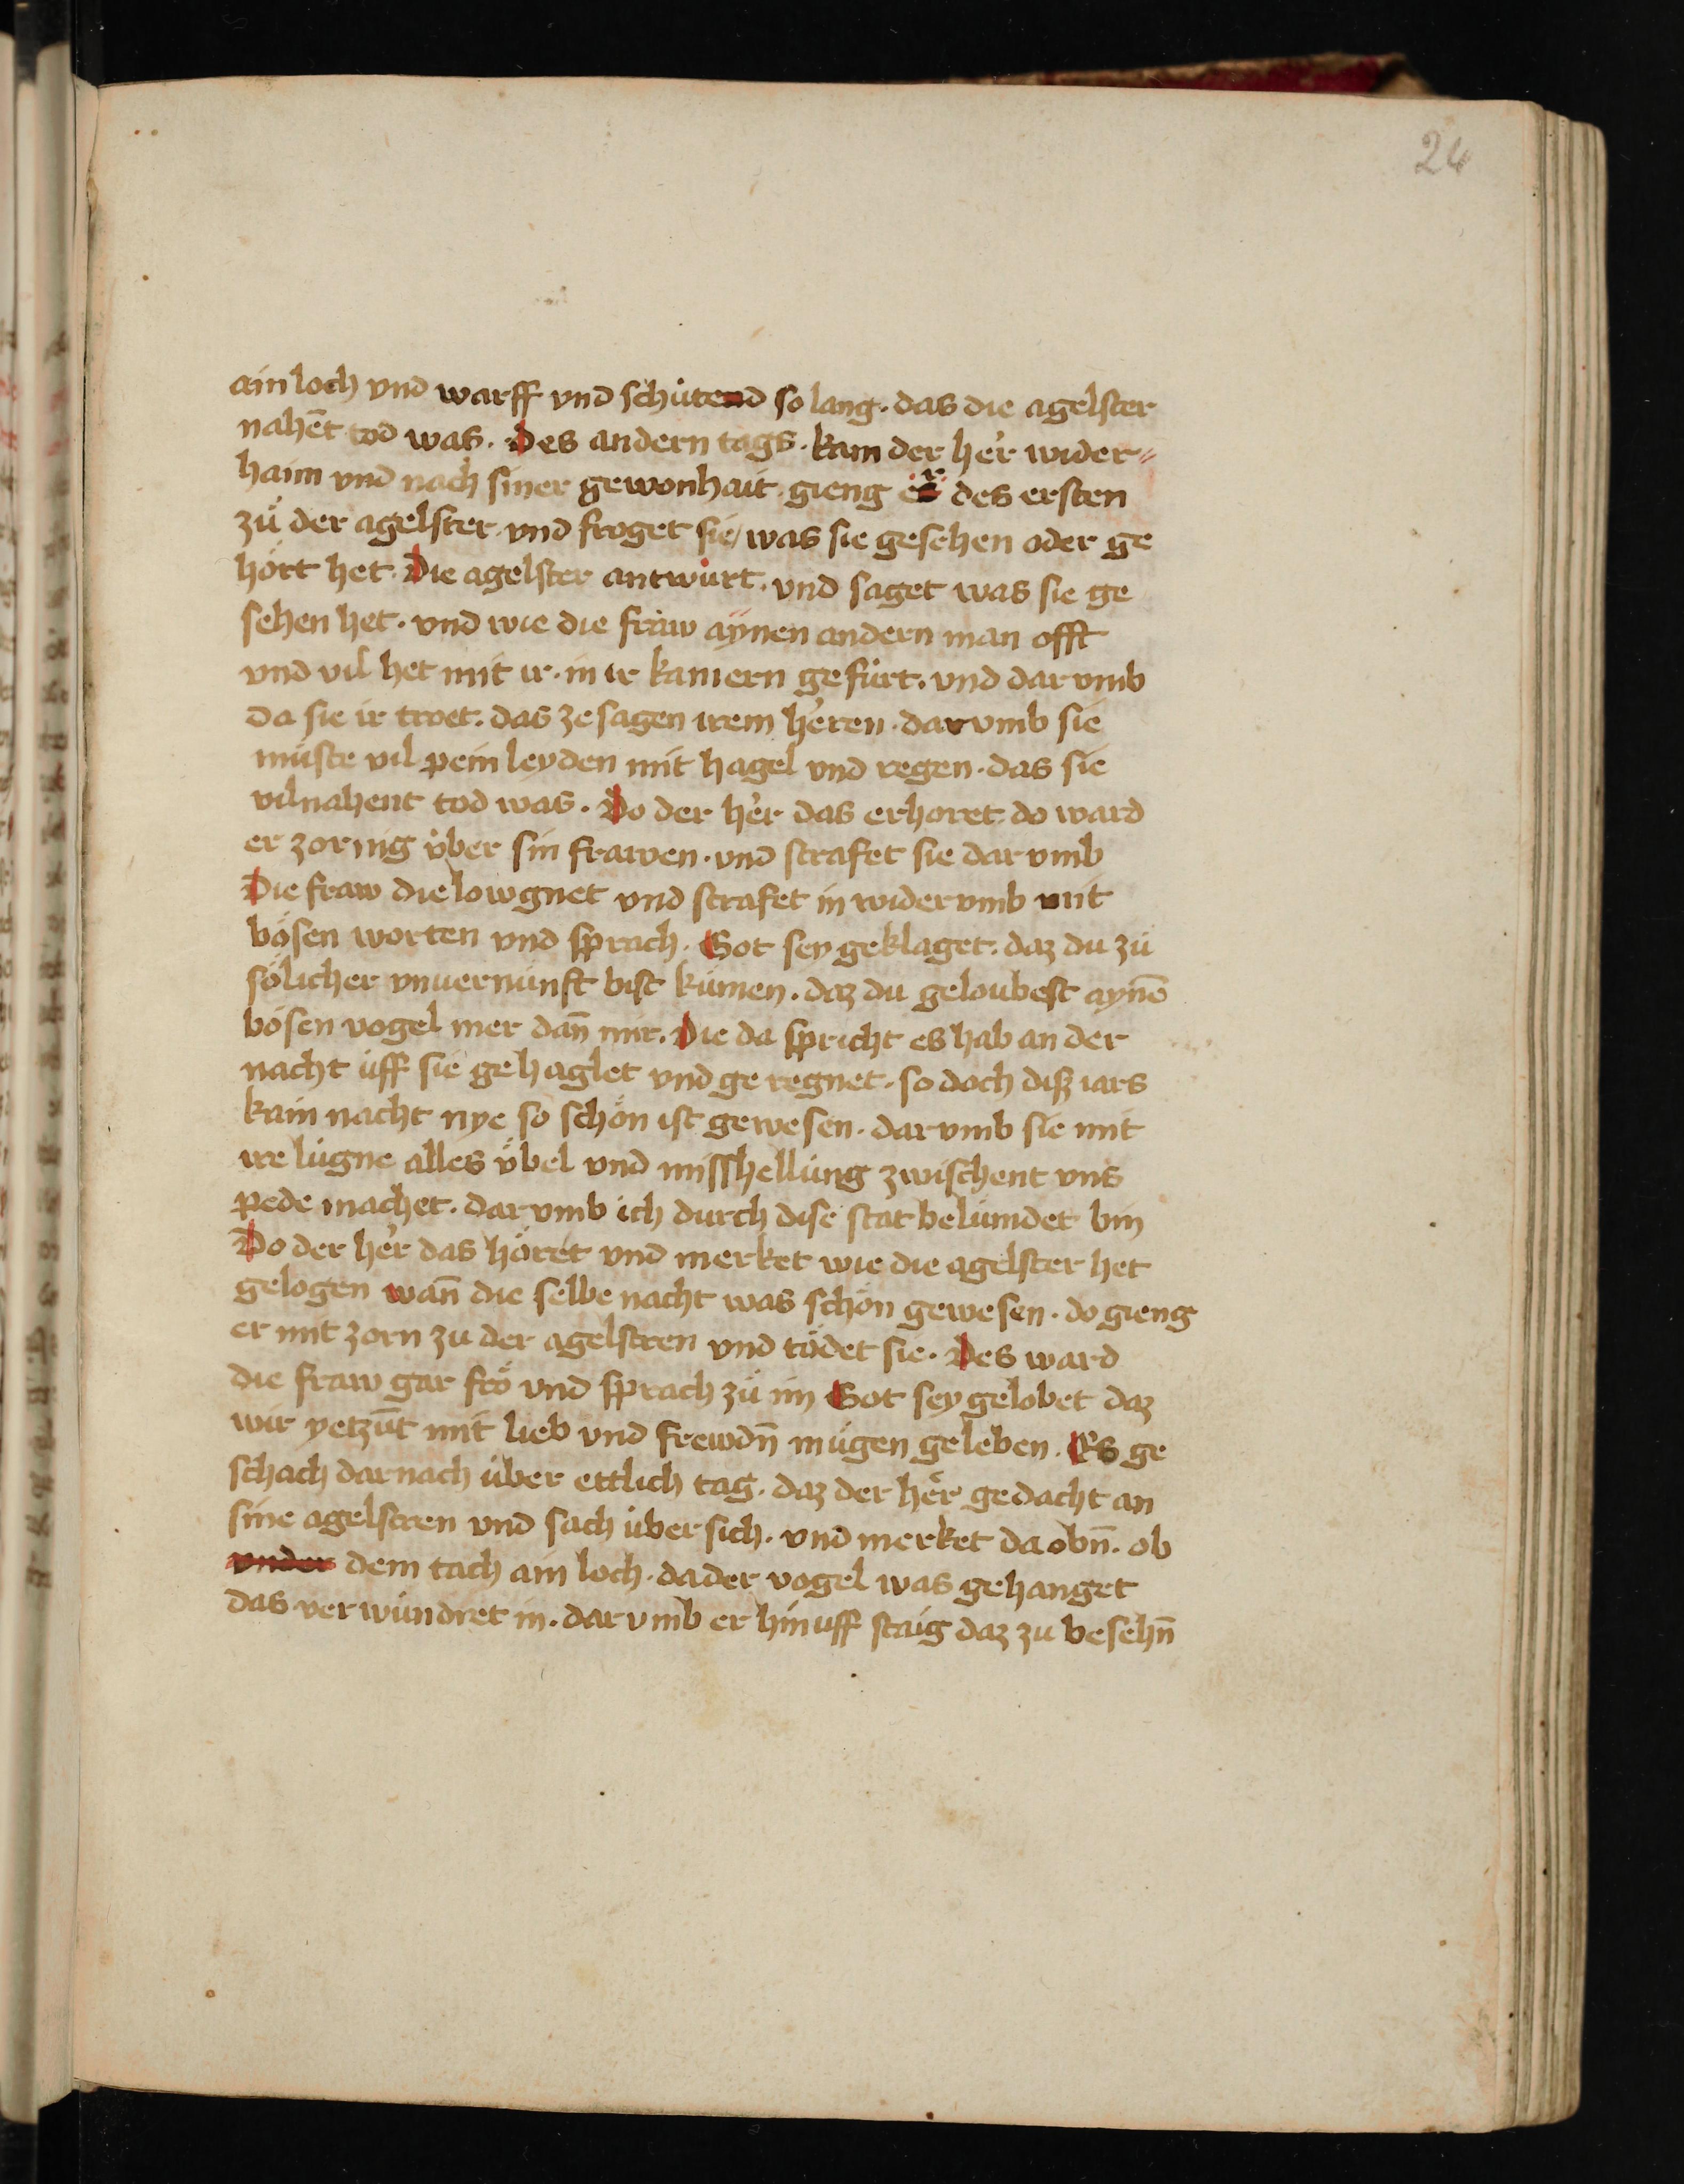 24
ain loch vnd warff vnd schütend so lang. das die agelster
nahēt tod was. Des andern tags. kam der her wider⸗
haim vnd nach siner gewonhait. gieng er des ersten
zů der agelster. vnd froget sie/ was sie gesehen oder ge
hört het. Die agelster antwürt. vnd saget was sie ge
sehen het. vnd wie die fraw aynen andern man offt
vnd vil het mit ir. in ir kamern gefürt. vnd dar vmb
da sie ir troet. das ze sagen irem heren. dar vmb sie
müste vil pein leyden mit hagel vnd regen. das sie
vilnahent tod was. Do der her das erhoret do ward
er zornig über sin frawen. vnd strafet sie dar vmb
Die fraw die lowgnet vnd strafet in wider vmb mit
bösen worten vnd sprach. Got sey geklaget. daz du zü
sölicher vnuernunft bist kumen. daz du geloubest aynē
bösen vogel mer dañ mir. Die da spricht es hab an der
nacht uff sie gehaglet vnd ge regnet. so doch diß iars
kain nacht nye so schön ist gewesen. dar vmb sie mit
ire lügne alles übel vnd misshellung zwischent vns
pede machet. dar vmb ich durch dise stat belümdet bin
Do der her das höret vnd merket wie die agelster het
gelogen wañ die selbe nacht was schön gewesen. do gieng
er mit zorn zu der agelstren vnd tödet sie. Des ward
die fraw gar frö vnd sprach zü im Got sey gelobet daz
wir yetzūt mit lieb vnd frewdn̄ mügen geleben. Es ge
schach darnach über ettlich tag. daz der her gedacht an
sine agelstren vnd sach über sich. vnd merket da obn̄. ob
vnder dem tach ain loch. da der vogel was gehanget
das verwundret in. dar vmb er hin uff staig daz zu besehn̄